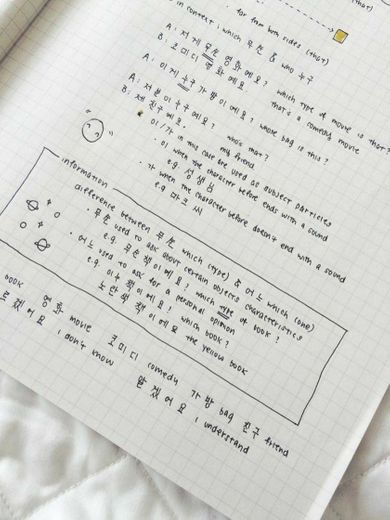 for from both sides (that)
in context : which 무슨 & who 누구
A : 저게 무슨 영화예요? which type of movie is that?
B : 코미디 영화예요. that's a comedy movie
A : 이게 누구 가방이에요? whose bag is this?
A : 저분이 누구예요? who's that?
B : 제 친구예요. my friend
이/가 in this case are used as subject particles
· 이 when the character before ends with a sound
e.g. 선생님
· 가 when the character before doesn't end with a sound
e.g. 마크 씨
information
difference between 무슨 which (type) & 어느 which (one)
· 무슨 used to ask about certain objects characteristics
e.g. 무슨 책이에요? which type of book?
· 어느 used to ask for a personal opinion
e.g. 어느 책이에요? which book?
노란색 책이에요 the yellow book
book 영화 movie 코미디 comedy 가방 bag 친구 friend
르겠어요 i don't know 알겠어요 i understand